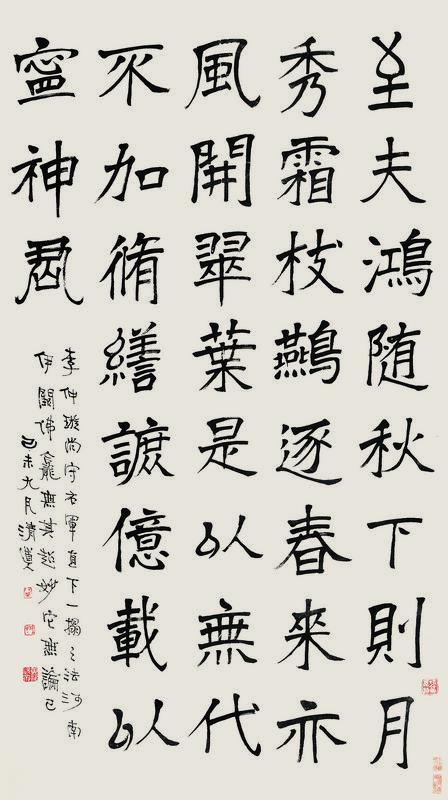 至夫鴻随秋下則月
秀霜枝鷰逐春來亦
風開翠葉是以無代
不加脩繕謶億載以
寧神
李仲璇尚守右軍直下一搨之法河南
伊闕佛龕無其超妙它無論已
己未九月清